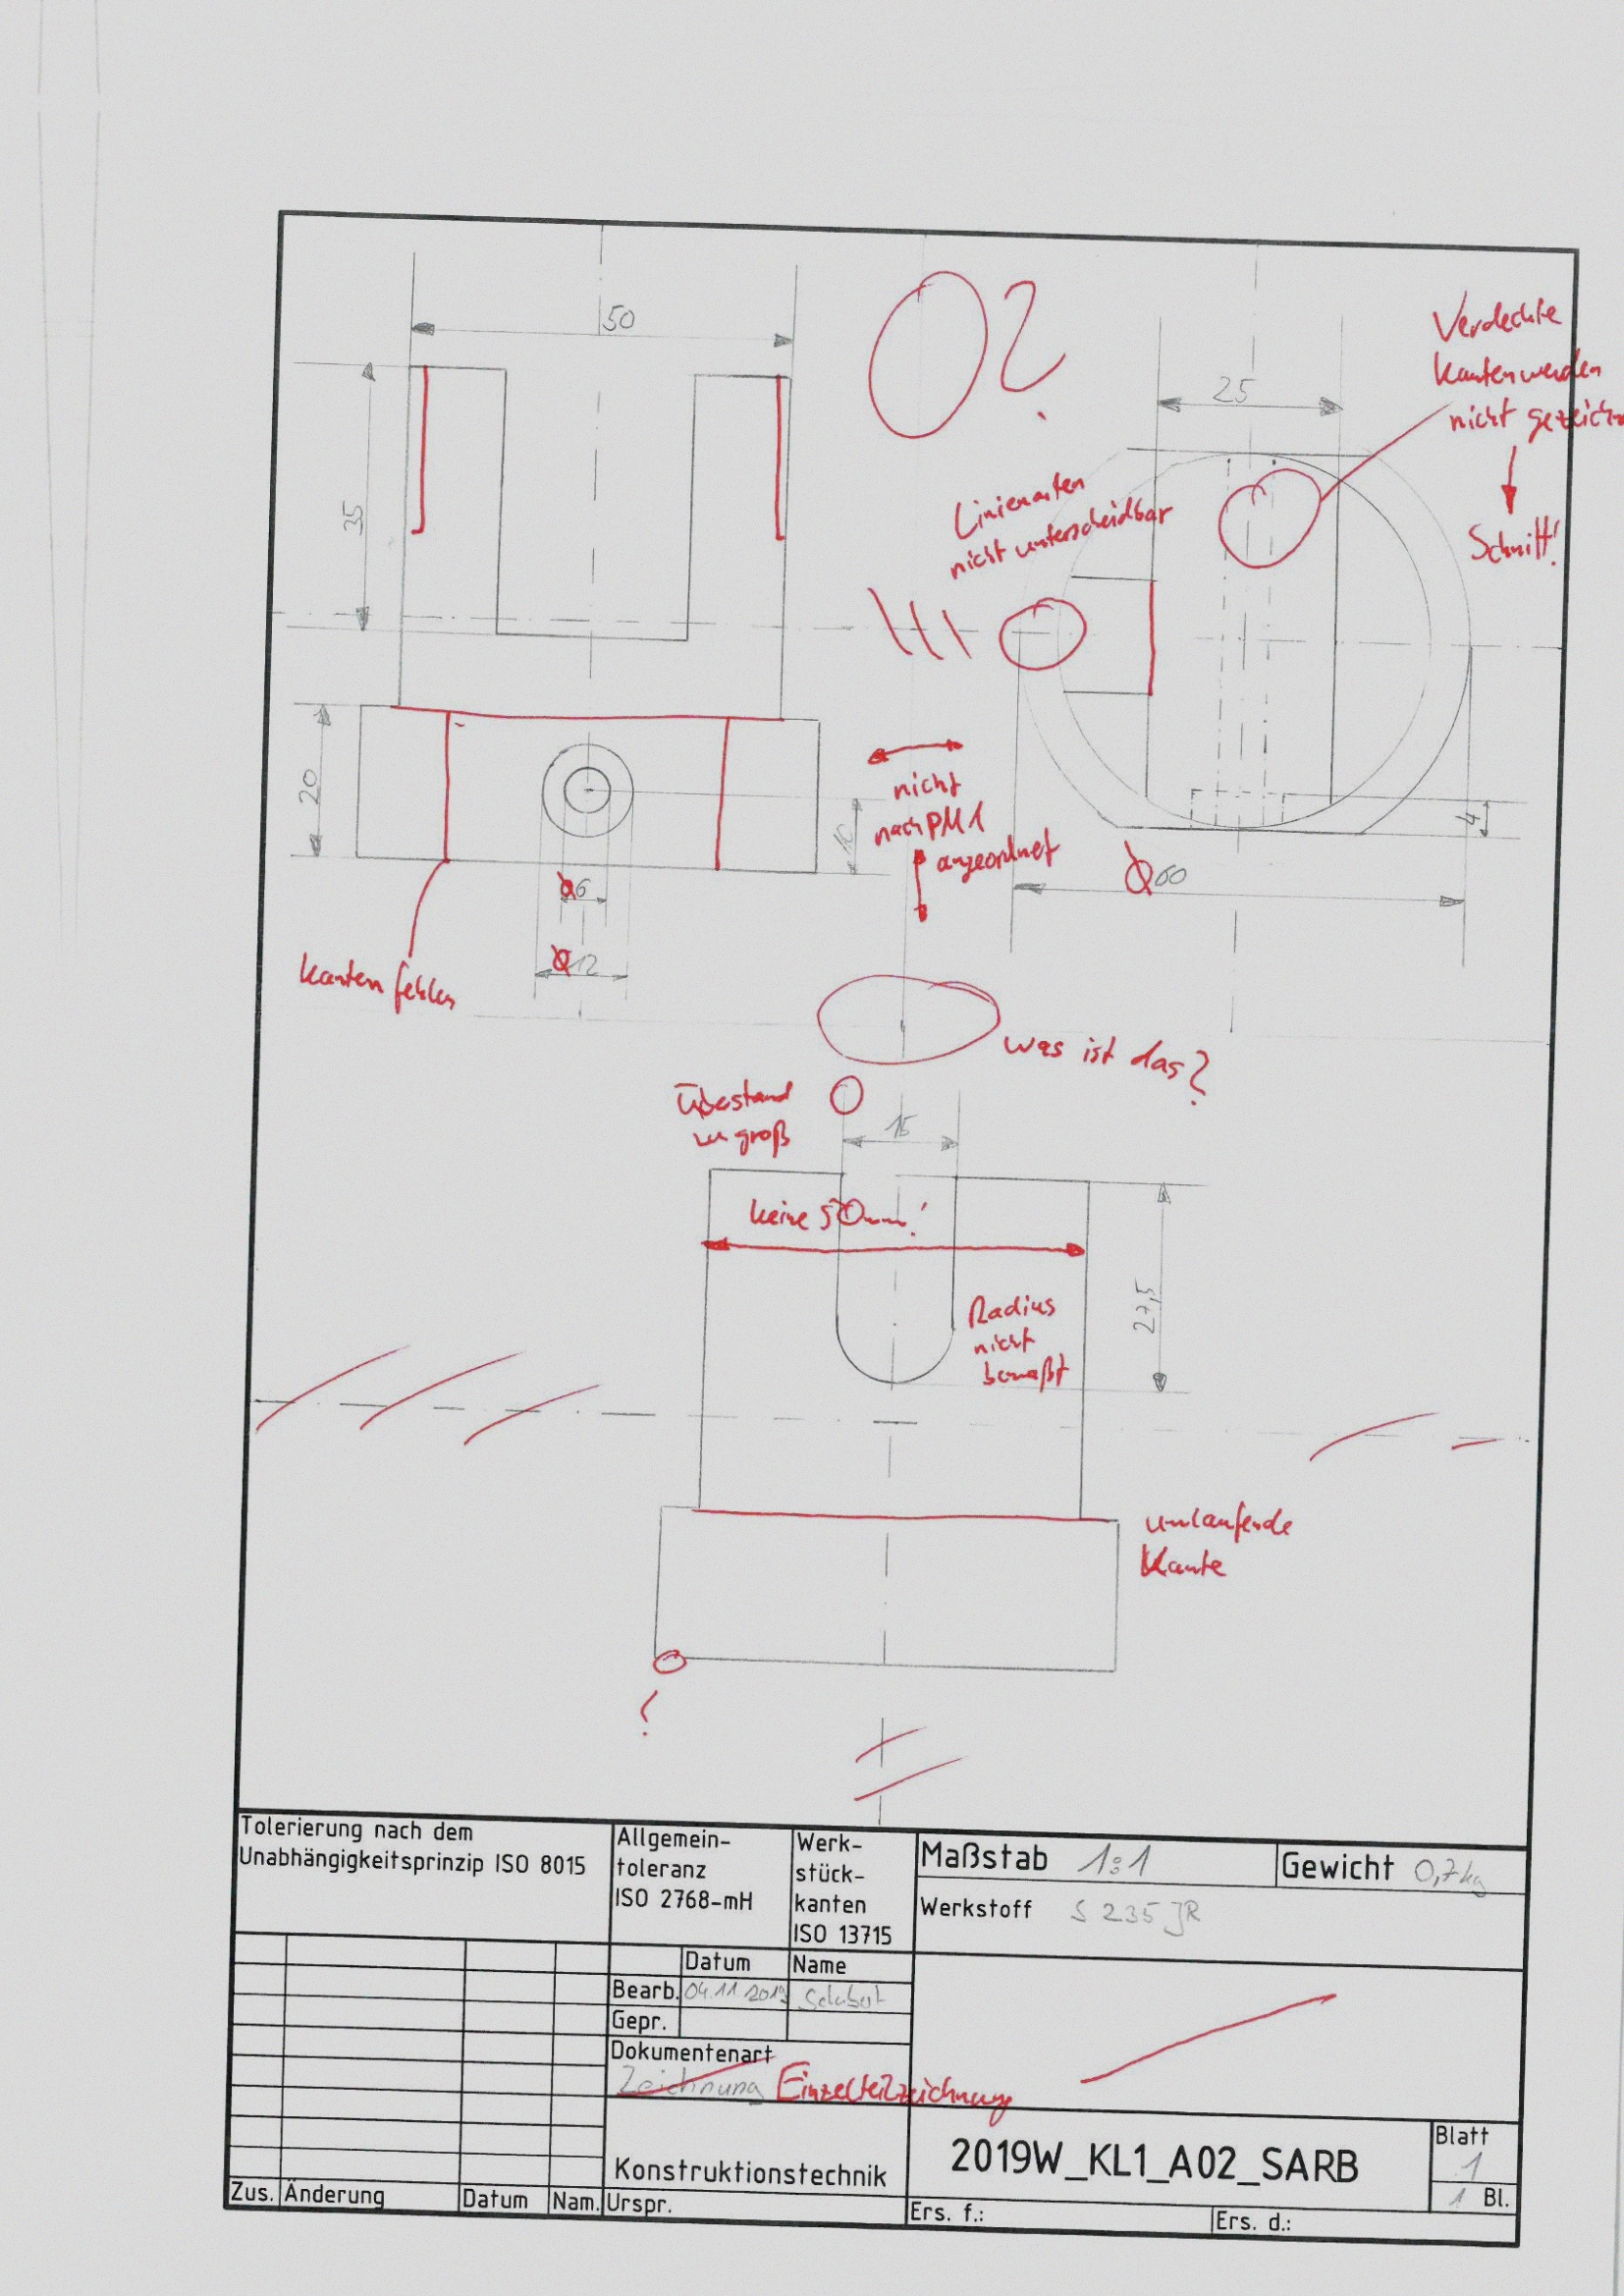 50
02
Verdeckte
Kanten werden
nicht
Schnitt!
25
Linienarten
nicht unterscheidbar
35
20
10
nicht
nach PM1
angeordnet
4
ø6
ø12
ø60
Kanten fehlen
was ist das?
Überstand
zu groß
15
keine 50mm!
27,5
Radius
nicht
bemaßt
umlaufende
Kante
?
Tolerierung nach dem
Unabhängigkeitsprinzip ISO 8015
Allgemein-
toleranz
ISO 2768-mH
Werk-
stück-
kanten
ISO 13715
Maßstab 1:1
Gewicht 0,7kg
Werkstoff S 235 JR
Datum Name
Bearb. 04.11.2019
Gepr.
Dokumentenart
Zeichnung Einzelteilzeichnung
Konstruktionstechnik
2019W_KL1_A02_SARB
Blatt
1
1 Bl.
Zus. Änderung Datum Nam. Urspr. Ers. f.: Ers. d.: